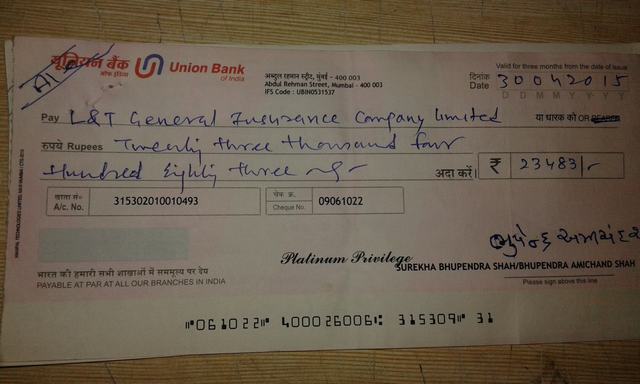 यूनियन बैंक
ऑफ इंडिया
Union Bank
of India
A/c
अब्दुल रहमान स्ट्रीट, मुंबई - 400 003
Abdul Rehman Street, Mumbai - 400 003
IFS Code : UBIN0531537
Valid for three months from the date of issue
दिनांक
Date 30042015
D D M M Y Y Y Y
Pay L&T General Insurance Company Limited या धारक को OR BEARER
रुपये Rupees Twenty three thousand four
Hundred Eighty three अदा करें। ₹ 23483/-
खाता सं०
A/c. No. 315302010010493
चेक क्र.
Cheque No. 09061022
ભુપેન્દ્ર અમીચંદ શાહ
Platinum Privilege
SUREKHA BHUPENDRA SHAH/BHUPENDRA AMICHAND SHAH
Please sign above this line
भारत की हमारी सभी शाखाओं में सममूल्य पर देय
PAYABLE AT PAR AT ALL OUR BRANCHES IN INDIA
⑈061022⑈ 400026006⑆ 315309⑈ 31